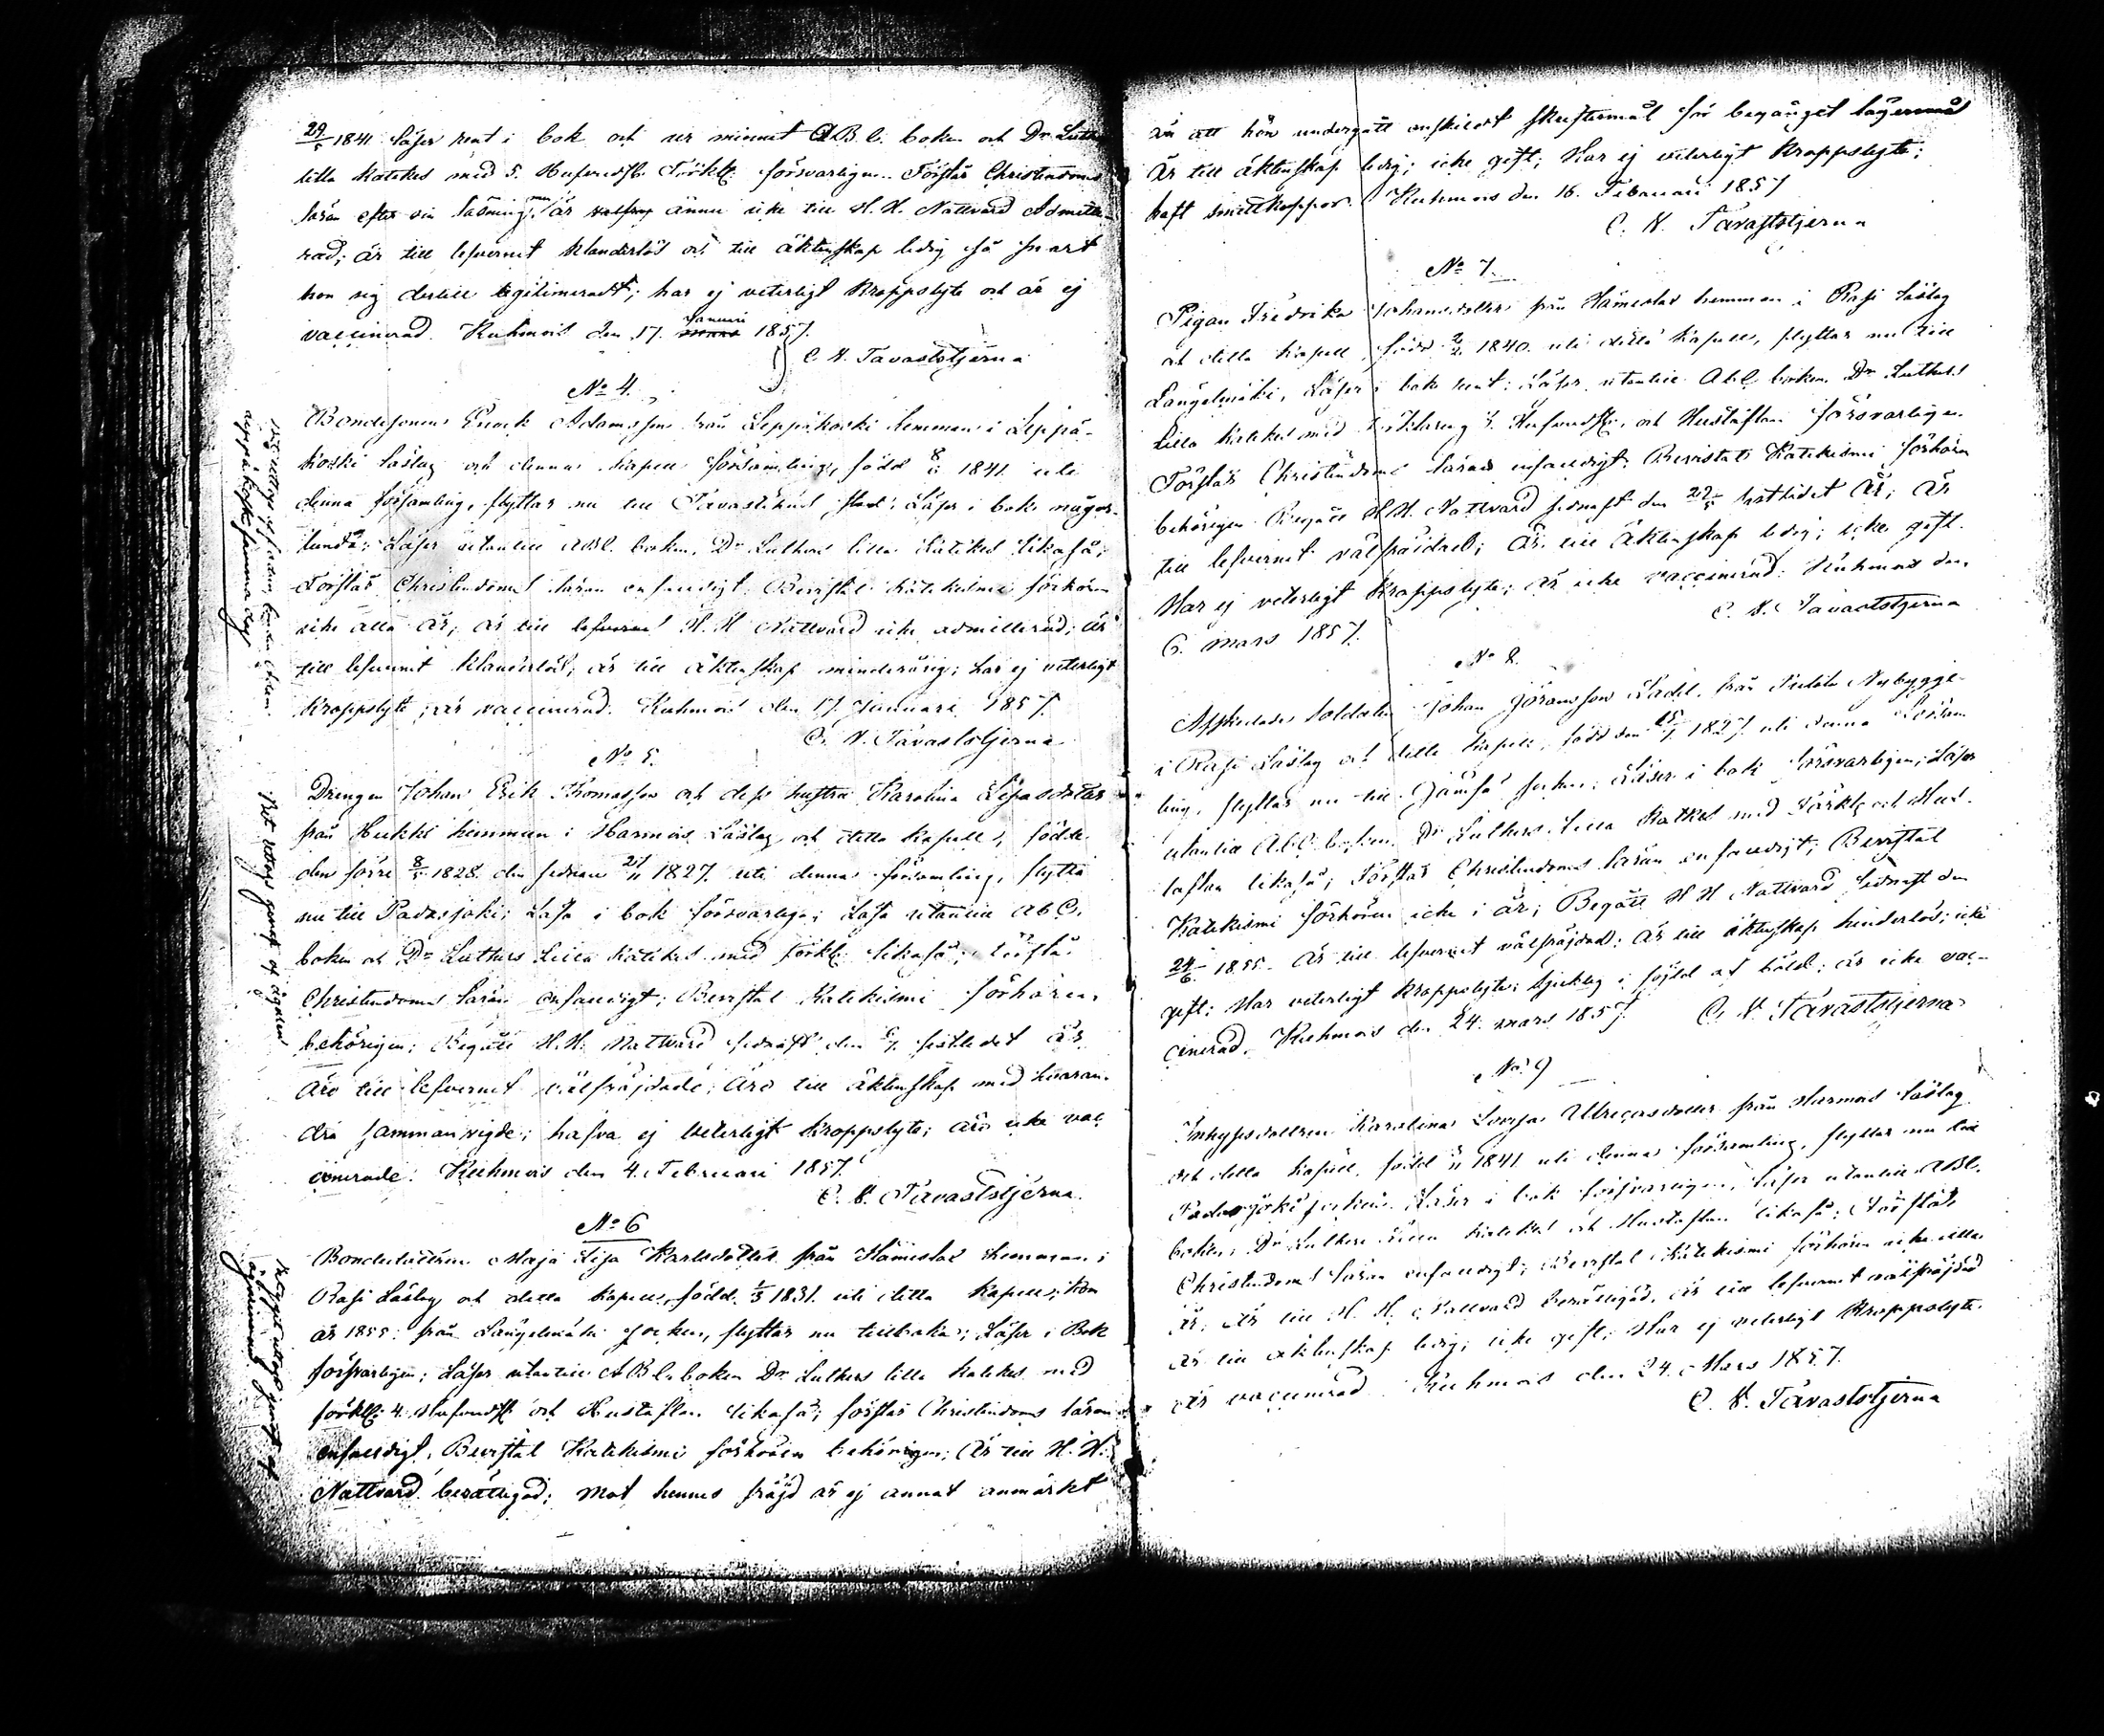 29/5 1841 läser rent i bok och ur minnet A.B.C. boken och Dr Luthers
lilla Katekes med 5. Hufvudst. Förkl. försvarligen. Förstår Christendoms
läran efter sin läsning, men är ännu icke till H. H. Nattvard Admitte-
rad; är till lefvernet klanderlös och till äktenskap ledig så snart
hon sig dertill legitimerat; har ej veterligt Kroppslyte och är ej
vaccinerad. Kuhmois den 17. Januari 1857.
C. N. Tavaststjerna
No 4.
Bondesonen Enock Adamsson från Leppäkoski hemman i Leppä-
koski Låslag och denna Kapell församling, född 8/ 1841 uti
denna församling, flyttar nu till Tavastehus stad; Läser i bok någor-
lunda; Läser utantill ABC. boken, Dr Luthers lilla Katekes likaså;
Förstår Christendoms läran enfaldigt. Bevistat Katekismi förhören
icke alla år; är till H. H. Nattvard icke admitterad; är
till lefvernet klanderlös; är till äktenskap minderårig; har ej veterligt
Kroppslyte; är vaccinerad. Kuhmois den 17. Januari 1857.
C. N. Tavaststjerna
No 5.
Drengen Johan Erik Thomasson och dess hustru Karolina Lisasdotter
från Heikkilä hemman i Harmois Låslag och detta Kapell, födde
den förre 8/5 1828. den sednare 21/11 1827. uti denna församling, flytta
nu till Padasjoki; Läsa i bok försvarligen; Läsa utantill ABC.
boken och Dr Luthers Lilla Katekes med förkl. likaså; förstå
Christendoms läran enfaldigt; Bevistat Katekismi förhören
behörigen; Begått H. H. Nattvard sednast den sistledet år
äro till lefvernet välfräjdade; Äro till äktenskap med hvaran-
dra sammanvigde; hafva ej veterligt Kroppslyte; äro icke vac-
cinerade. Kuhmois den 4. Februari 1857.
C. N. Tavaststjerna.
No 6
Bondedottren Maja Lisa Karlsdotter från Hämeslax hemman i
Rasi Låslag och detta Kapell, född 1/3 1831. uti detta Kapell; Kom
år 1855. från Längelmäki Socken, flyttar nu tillbaka; Läser i Bok
försvarligen; Läser utantill ABC boken Dr Luthers lilla Katekes med
förkl. 4. Hufvudst. och Hustaflan likaså; förstår Christendoms läran
enfaldigt. Bevistat Katekismi förhören behörigen; Är till H. H.
Nattvard berättigad; mot hennes fräjd är ej annat anmärkt
Betyget uttogs genast af
ägarinnan
Bet. uttogs genast af ägaren
än att hon undergått enskildt skriftermål för begånget lägersmål
Är till äktenskap ledig; icke gift; Har ej veterligt Kroppslyte;
haft smittkoppor. Kuhmois den 16. Februari 1857
C. N. Tavaststjerna
No 7.
Pigan Fredrika Johansdotter från Hämeslax hemman i Rasi Låslag
och detta Kapell, född 1840. uti detta Kapell, flyttar nu till
Längelmäki, Läser i bok rent; Läser utantill ABC boken, Dr Luthers
Lilla Katekes med förklaring 3. Hufvudst. och Hustaflan försvarligen
Förstår Christendoms läran enfaldigt. Bevistat Katekismi förhören
behörigen. Begått H. H. Nattvard sednast den sistlidet År; är
till lefvernet välfräjdad; Är till Äktenskap ledig; icke gift.
Har ej veterligt Kroppslyte; är icke vaccinerad. Kuhmois den
6. mars 1857.
C. N. Tavaststjerna
No 8.
Afskedade Soldaten Johan Göransson från Nybygge
i Rasi Låslag och detta Kapell, född den 1827. uti denna Försam-
ling, flyttar nu till Jämsä Socken; Läser i bok försvarligen; Läser
utantill ABC boken, Dr Luthers Lilla Katekes med Förkl. och Hus-
taflan likaså; Förstår Christendoms läran enfaldigt; Bevistat
Katekismi förhören icke i år; Begått H H Nattvard sednast den
24/6 1855. Är till lefvernet välfräjdad; Är till äktenskap hinderlös; icke
gift; Har veterligt Kroppslyte; sjuklig i följd af böld; är icke vac-
cinerad. Kuhmois den 24. mars 1857.
C. N. Tavaststjerna
No 9
Inhysesdottren Karolina Lovisa Ulricasdotter från Harmois Låslag
och detta Kapell, född 1841 uti denna församling, flyttar nu till
Padasjoki socken. Läser i bok försvarligen, läser utantill ABC.
boken, Dr Luthers Lilla Katekes och Hustaflan likaså; Förstår
Christendoms läran enfaldigt; Bevistat Katekismi förhören icke alla
år; Är till H. H. Nattvard berättigad, är till lefvernet välfräjdad
är till äktenskap ledig; icke gift; Har ej veterligt Kroppslyte.
Är vaccinerad. Kuhmois den 24. Mars 1857.
C. N. Tavaststjerna